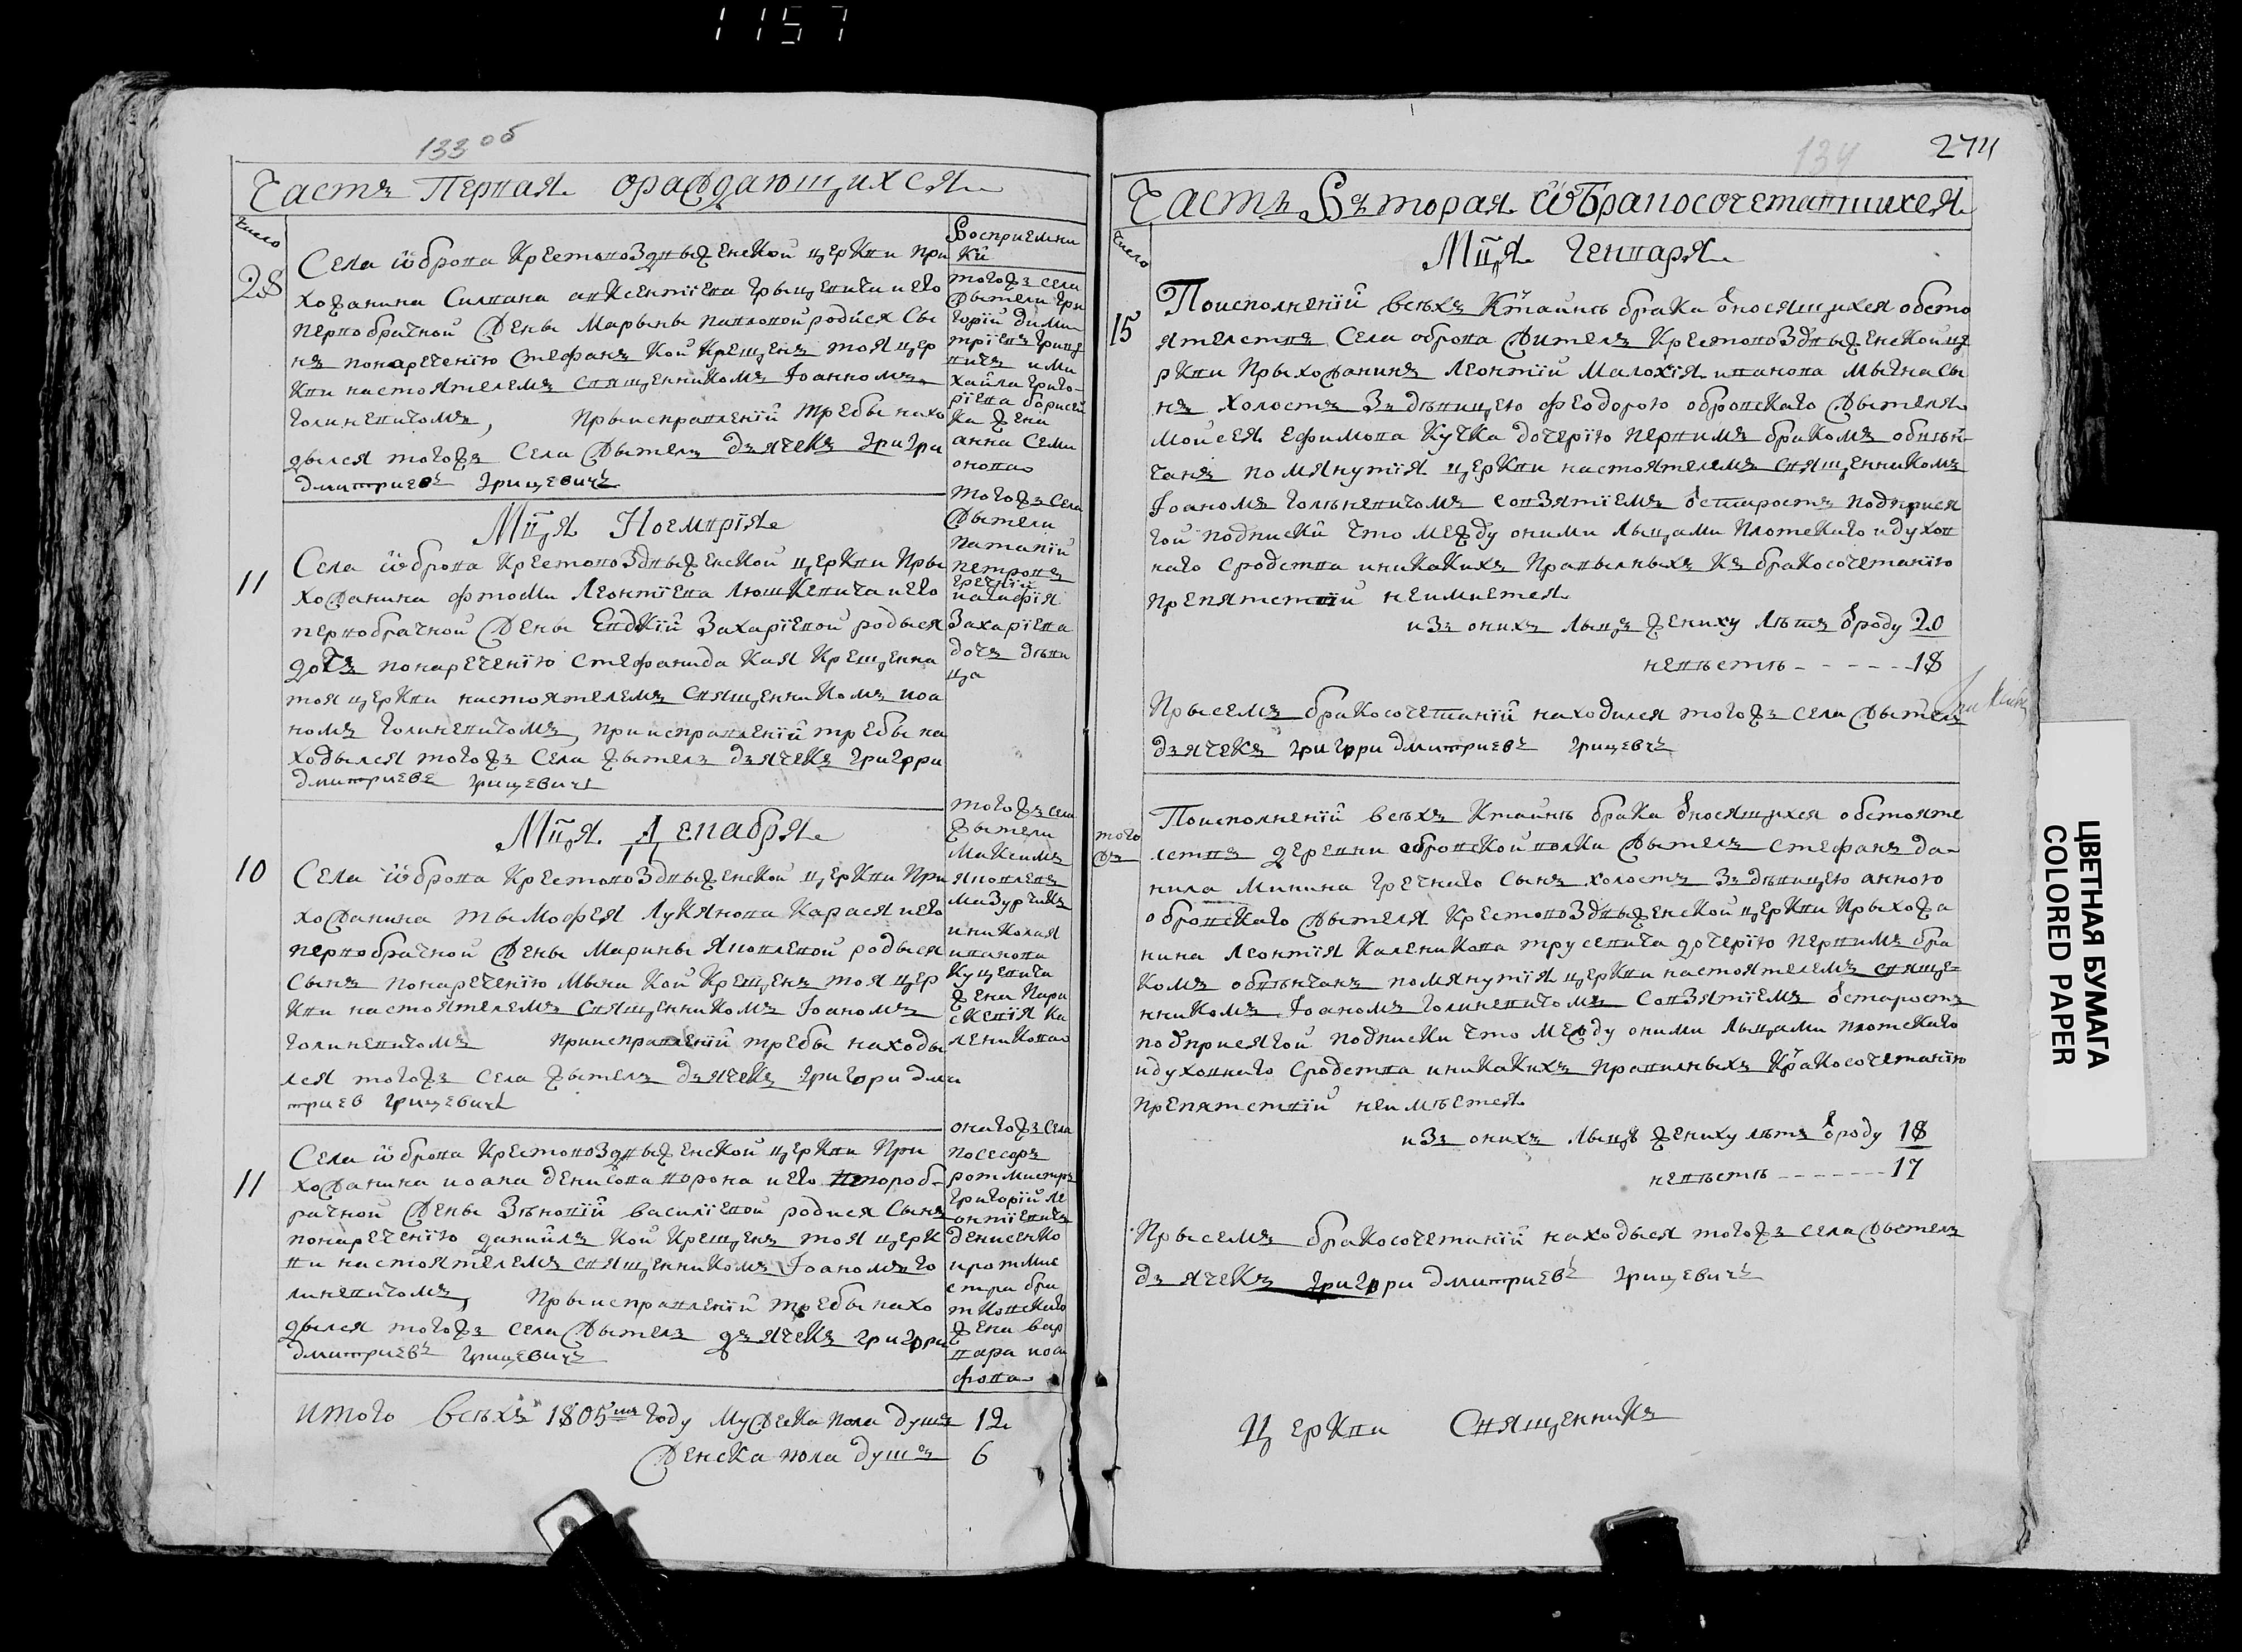 1157
133 об
Часть Первая ораждающихся
Число
Восприемни
ки
28
Села Оброва Крестовоздвыженской церкви при
хожанина Силвана авксентіева Грыцевича и его
первобрачной жены Марыны Павловой родися сы
нъ понареченію Стефанъ кой крещенъ тоя цер
кви настоятелемъ священникомъ Іоанномъ
Голиневичомъ, Прыисправленій требы нахо
дылся тогожъ села жытель дьячекъ Григри
дмитриевъ Грицевичъ
тогожъ села
жытели Гри
горій Дими
тріевъ Грице
вичъ и Ми
хайла Григо
ріева борисей
ка жена
анна Семи
онова
Мця Ноемврія
11
Села Оброва Крестовоздвыженской церкви Пры
хожанина фтоми Леонтіева Люшкевича и его
первобрачной жены Евдкій Захаріевой родыся
дочъ понареченію Стефанида кая крещенна
тоя церкви настоятелемъ священникомъ иоа
номъ Голиневичомъ, Приисправленій требы на
ходылся тогожъ села жытель дьячекъ Григрри
дмитриевъ Грицевичъ
тогожъ села
жытели
Иатапій
петровъ
Гречній
иагафія
Захаріева
дочъ деви
ца
Мця Декабря
10
Села Оброва Крестовоздвыженской церкви При
хожанина тымофея Лукянова Карася и его
первобрачной жены Марины Яковлевой родыся
сынъ понареченію Мына кой крещенъ тоя цер
кви настоятелемъ священникомъ Іоаномъ
Голиневичомъ Приисправленій требы находы
лся тогожъ села жытель дьячекъ Григори дми
триев Грицевичъ
тогожъ села
жытели
Максимъ
Яковлевъ
Мазурчикъ
и николая
иванова
Куцевича
жена Пара
скевія Ка
леникова
11
Села Оброва Крестовоздвыженской церкви При
хожанина иоана денисова ворона и его второб
рачной жены Зѣновій василіевой родися сынъ
понареченію даниилъ кой крещенъ тоя церк
ви настоятелемъ священникомъ Іоаномъ Го
линевичомъ, Прыисправленій требы нахо
дылся тогожъ села жытель дьячекъ Григрри
дмитриевъ Грицевичъ
онагожъ села
посесоръ
ротмистръ
Григорій Ле
онтіевичъ
денисенко
и ротмис
стра бри
тковского
жена вар
вара иоси
фова
итого Всѣхъ 1805го году мужеска пола душъ 12
женска пола душъ 6
134
274
Часть Вторая О Бракосочетавшихся
Число
Мця Генваря
15
Поисполненій всѣхъ ктайнѣ брака относящихся обсто
ятелствъ Села оброва жителъ Крестовоздвыженской це
ркви Прыхожанинъ Леонтій Малохія иванова Мычка сы
нъ холостъ Зъ дѣвицею феодорою обровскаго жытеля
Мойсея Ефимова Кучка дочерію первимъ бракомъ обвѣн
чанъ помянутія церкви настоятелемъ священникомъ
Іоаномъ Голѣневичомъ совзятіемъ отстаростъ подприся
гой подписки что между оними лыцами плотскаго и духов
наго сродства иникакихъ Правылныхъ къ бракосочетанію
препятствій неимиется
изъ онихъ лыцъ жениху лѣтъ отроду 20
невѣстѣ - - - - - - 18
Прысемъ бракосочетаній находился тогожъ села жытель
дьячекъ Григрри дмитриевъ Грицевичъ
того
жъ
Поисполненій всѣхъ ктайнѣ брака относящихся обстояте
лствъ деревни обровской волки жытель Стефанъ да
нила Минина Гречного сынъ холостъ Зъ дѣвицею анною
обровскаго жытеля Крестовоздвыженской церкви Прыхожа
нина Леонтія Каленикова трусевича дочерію первимъ бра
комъ обвѣнчанъ помянутія церкви настоятелемъ свяще
нникомъ Іоаномъ Голиневичомъ Совзятіемъ отстаростъ
подприсягой подписки что между оними лыцами плотскаго
идуховнаго сродства иникакихъ правилныхъ кбракосочетанію
препятствій неимѣется
изъ онихъ лыцъ жениху лѣтъ отроду 18
невѣстѣ - - - - - - - 17
Прысемъ бракосочетаній находыся тогожъ села жытель
дьячекъ Григрри дмитриевъ Грицевичъ
Церкви Священникъ
ЦВЕТНАЯ БУМАГА
COLORED PAPER